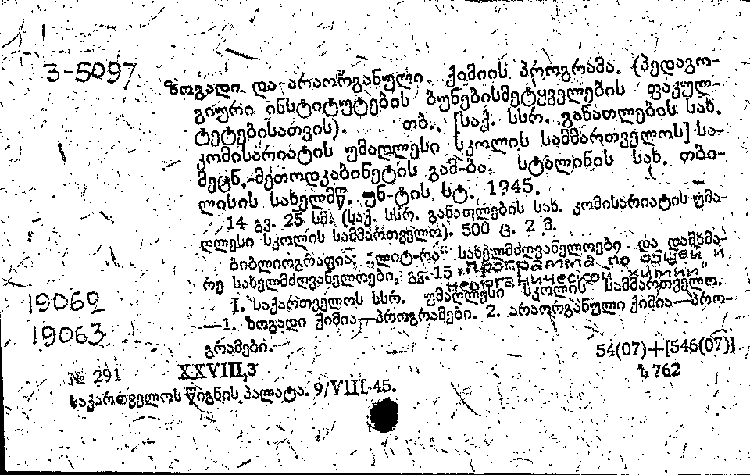 3-5097
ზოგადი და არაორგანული ქიმიის პროგრამა. (პედაგო-
გიური ინსტიტუტების ბუნებისმეტყველების ფაკულ-
ტეტებისათვის). თბ., [საქ. სსრ. განათლების სახ.
კომისარიატის უმაღლესი სკოლის სამმართველოს] სა-
მეცნ.-მეთოდკაბინეტის გამ-ბა. სტალინის სახ. თბი-
ლისის სახელმწ. უნ-ტის სტ. 1945.
14 გვ. 25 სმ. (საქ. სსრ. განათლების სახ. კომისარიატის უმა-
ღლესი სკოლის სამმართველო). 500 ც. 2 მ.
ბიბლიოგრაფია: „ლიტ-რა“ სახელმძღვანელოები და დამხმა-
რე სახელმძღვანელოები, გვ. 15 „Программа по общей и
неорганической химии“
I. საქართველოს სსრ. უმაღლესი სკოლის სამმართველო.
—1. ზოგადი ქიმია—პროგრამები. 2. არაორგანული ქიმია—პრო-
გრამები.
19062
19063
54(07)+[546(07)]
ზ 762
№ 291 XXVIII,3
საქართველოს წიგნის პალატა. 9/VIII-45.